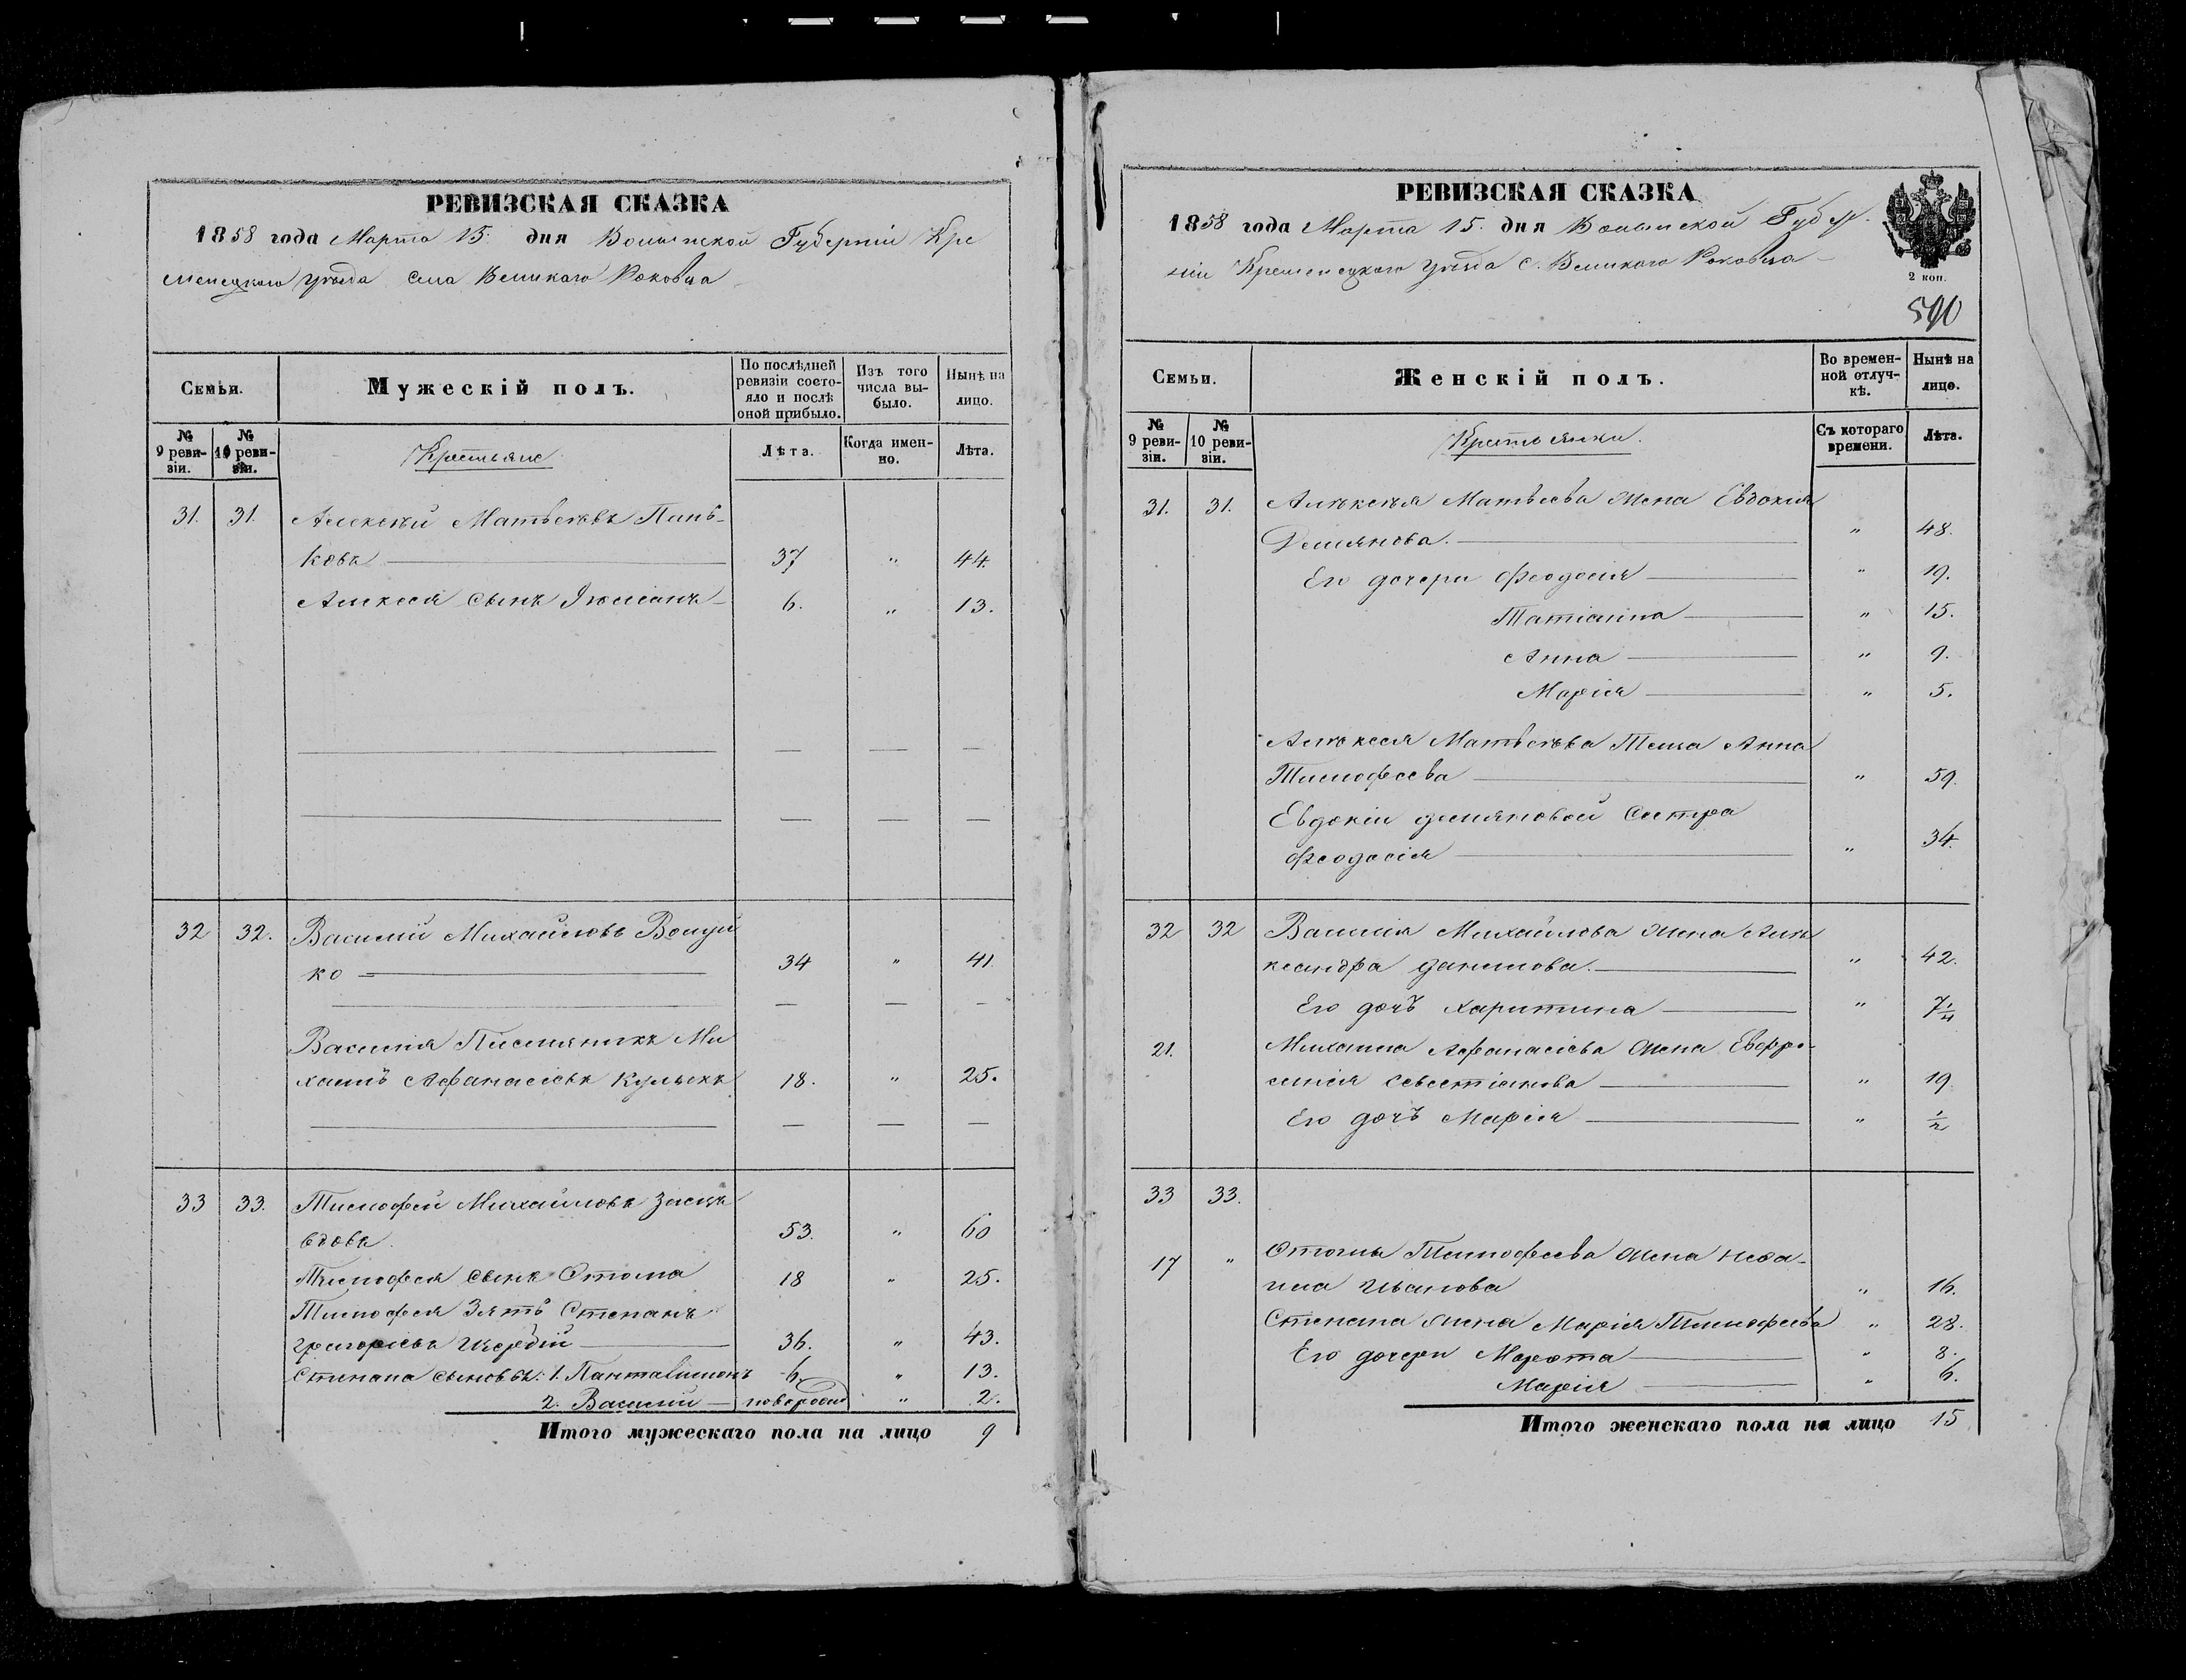 РЕВИЗСКАЯ СКАЗКА
1858 года Марта 15. дня Волынской Губерніи Кре
менецкого уѣзда села Великаго Раковца
Семьи.
Мужескій полъ.
По послѣдней ревизіи состояло и послѣ оной прибыло.
Изъ того числа выбыло.
Нынѣ на лицо.
№ 9 ревизіи.
№ 10 ревизіи.
Крестьяне
Лѣта.
Когда именно.
Лѣта.
31. 31. Алексѣй Матвѣевъ Пань-
ковъ 37 " 44.
Алексея сынъ 6. " 13.
32 32. Василий Михайловъ
ко 34 " 41.
Василія Ми
хаилъ Афанасіевъ 18. " 25.
33 33. Тимофей Михайловъ
вдовъ 53. " 60
Тимофея сынъ Отома 18 " 25.
Тимофея Зять Степанъ
Григорьевъ 36. " 43.
Степана сыновья: 1. Панталимонъ 6. " 13.
2. Василий новорожд " 2.
Итого мужескаго пола на лицо 9
РЕВИЗСКАЯ СКАЗКА
1858 года Марта 15. дня Волынской Губер-
ніи Кременецкого уѣзда с. Великаго Раковца
2 коп.
590
Семьи.
Женскій полъ.
Во временной отлучкѣ.
Нынѣ на лицо.
№ 9 ревизіи.
№ 10 ревизіи.
Крестьянки.
Съ котораго времени.
Лѣта.
31. 31. Алексѣя Матвѣева жена Евдокія
Демянова. " 48.
Его дочери Феодосія " 19.
Татіанна " 15.
Анна " 9.
Марія " 5.
Алексея Матвѣева Теща Анна
Тимофеева " 59.
Евдокіи демяновой Сестра
Феодосія " 34.
32 32 Василія Михайлова жена Але
ксандра данилова. " 42.
Его дочь Харитина " 7 1/4
21. Михаила Афанасіева жена Евфро-
синія Севестіянова " 19
Его дочь Марія " 1/2
33 33.
17 " Отомы Тимофеева жена
Иванова " 16.
Степана жена Марія Тимофеева " 28.
Его дочери " 8.
Марія " 6.
Итого женскаго пола на лицо 15